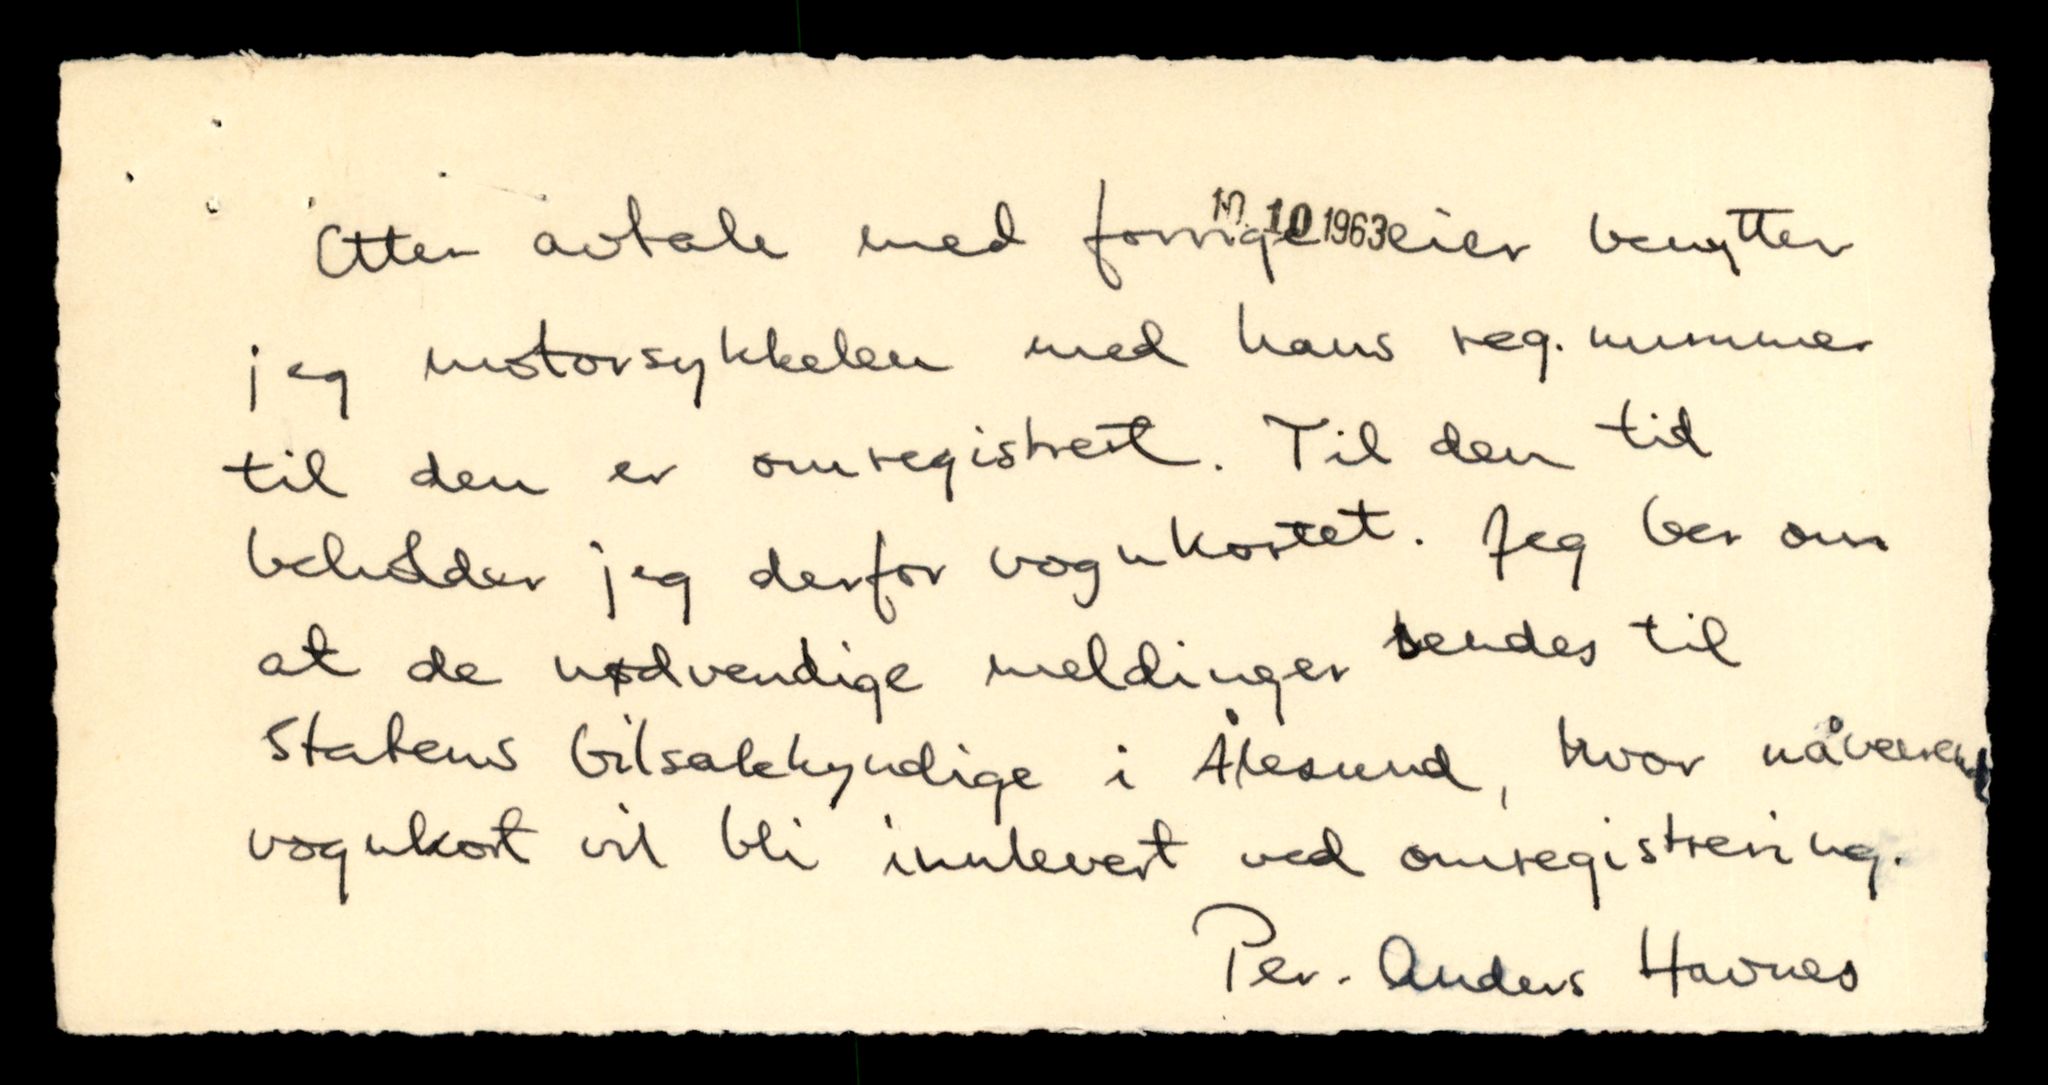 Etter avtale med forrige eier benytter
10.10 1963
jeg motorsykkelen med hans reg.nummer
til den er omregistrert. Til den tid
beholder jeg derfor vognkortet. Jeg ber om
at de nødvendige meldinger sendes til
statens bilsakkyndige i Ålesund, hvor nåværende
vognkort vil bli innlevert ved omregistrering.
Per-Anders Havnes